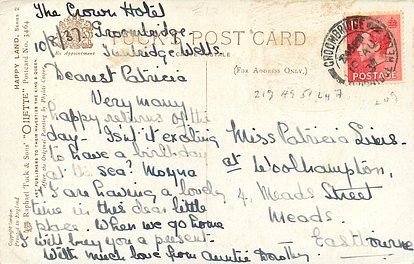 The Crown Hotel
10/8/37. Groombridge
Tunbridge Wells.
TUCK'S POST CARD
By Appointment
CARTE POSTALE
(FOR ADDRESS ONLY.)
Dearest Patricia
Very many
happy returns of the
day - Isn't it exciting
to have a birthday
at the sea? Moyna
& I are having a lovely
time in this dear little
place. When we go home
will buy you a present.
With much love from Auntie Dorothy
Miss Patricia
at Woolhampton.
4. Meads Street
Meads.
Eastbourne
GROOMBRIDGE
POSTAGE
HAPPY LAND. SERIES 2
Raphael Tuck & Sons' "OILETTE" Postcard No. 3464
PUBLISHERS TO THEIR MAJESTIES THE KING & QUEEN
Copyright London
Printed in England